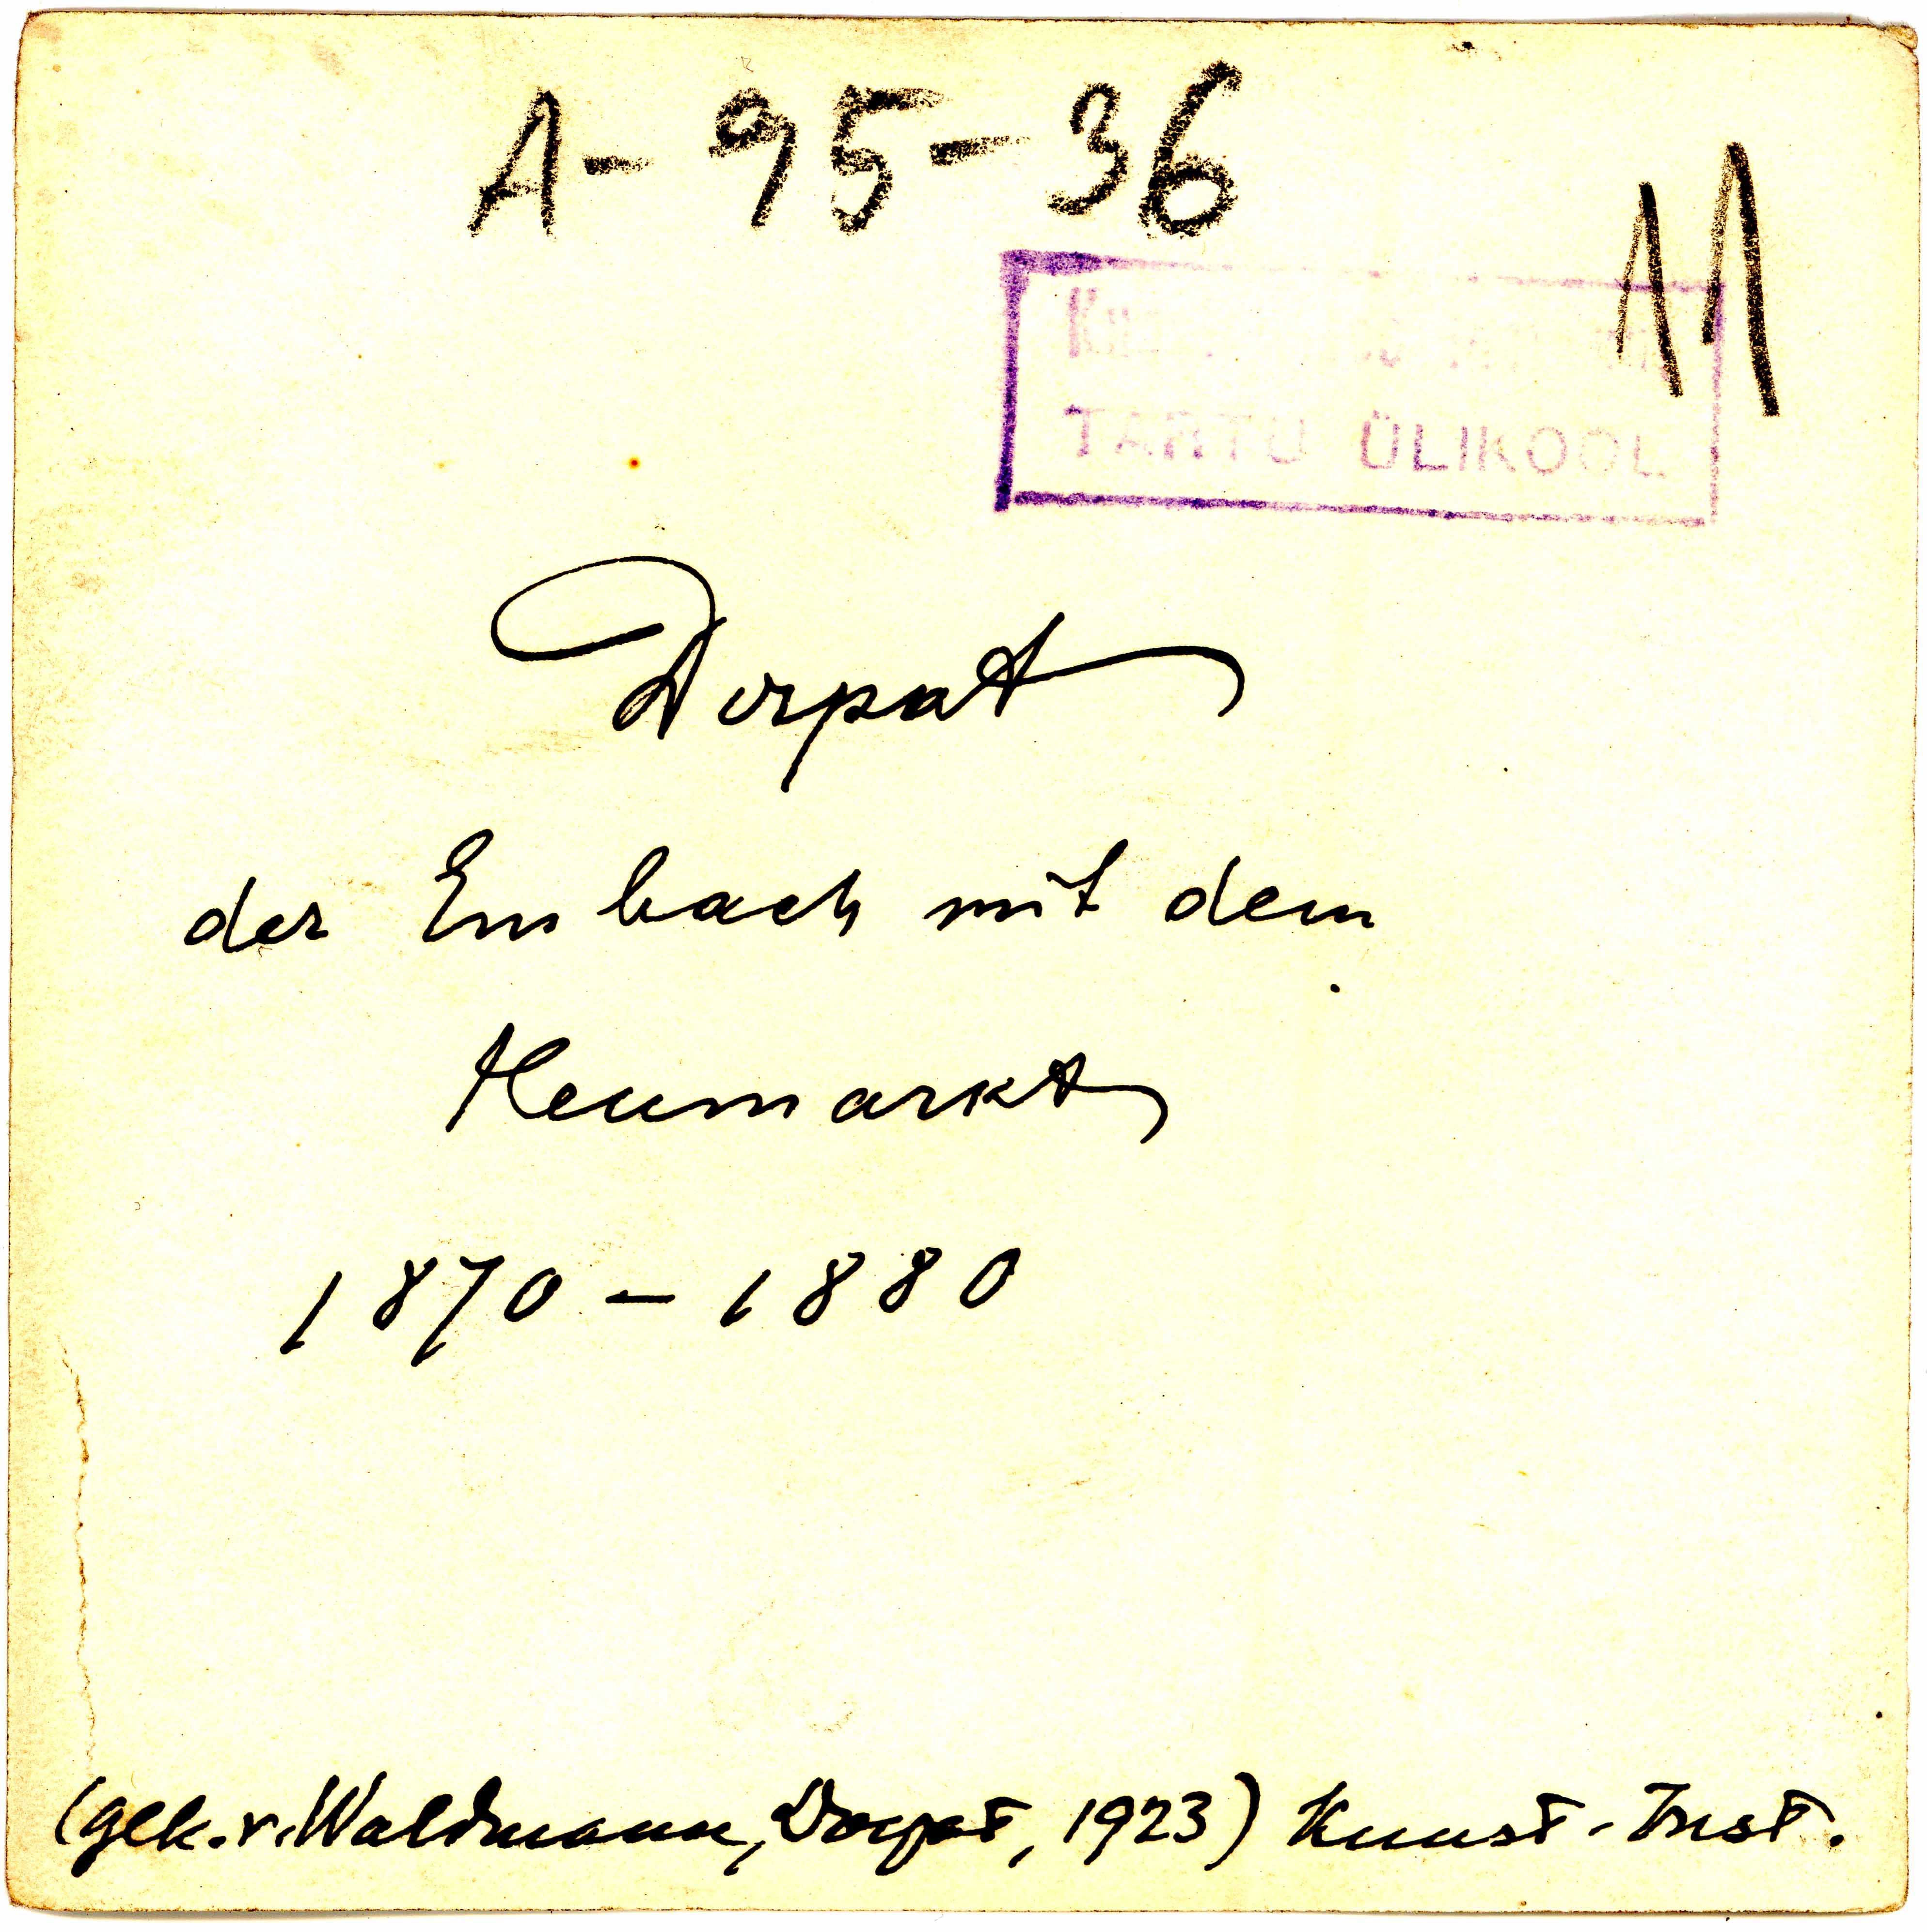 A- 95-36
11
TARTU ÜLIKOOL
Dorpat
der Embach mit dem
Heumarkt
1870 - 1880
(gek. v. Waldmann, Dorpat, 1923) Kunst-Inst.